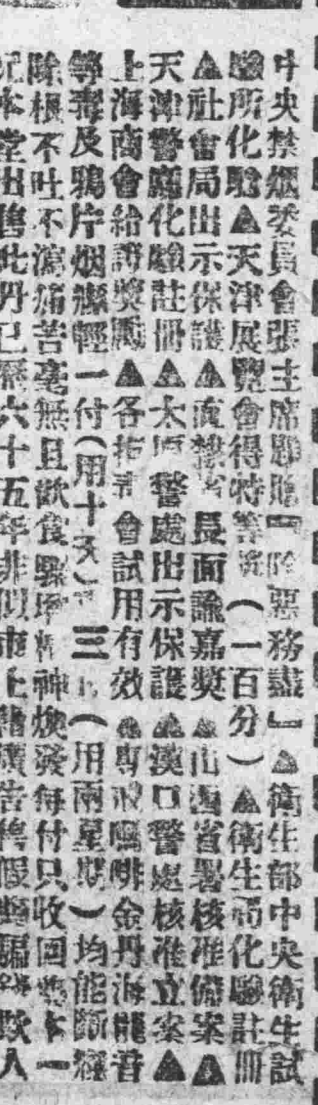 中央禁烟委員會張主席題贈『除惡務盡』▲衛生部中央衛生試
驗所化驗▲天津展覽會得特等獎（一百分）▲衛生局化驗註冊
▲社會局出示保護▲直隸省長面諭嘉獎▲山西省署核准備案▲
天津警廳化驗註冊▲太原警處出示保護▲漢口警處核准立案▲
上海商會給證獎勵▲各拒毒會試用有效▲專戒嗎啡金丹海龍音
等毒及鴉片烟癮輕一付（用十天）三（用兩星期）均能斷癮
除根不吐不瀉痛苦毫無且飲食驟增精神煥發每付只收回藥本一
元本堂出售此丹已歷六十五年非似市上廣告誇假騙欺人